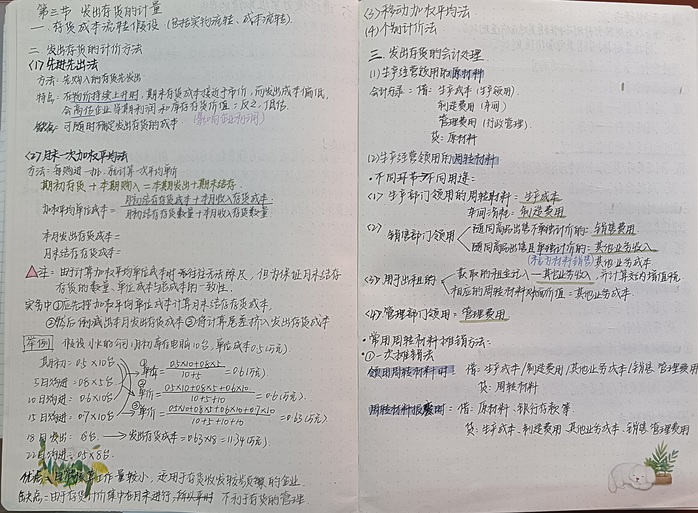 第三节 发出存货的计量
一. 存货成本流转假设 (包括实物流转、成本流转).
二. 发出存货的计价方法
(1) 先进先出法
方法: 先购入的存货先发出
特点: 在物价持续上升时, 期末存货成本接近于市价, 而发出成本偏低,
会高估企业当期利润和库存存货价值; 反之, 低估.
可随时确定发出存货的成本. (影响企业利润)
(2) 月末一次加权平均法
方法: 每购进一次, 计算一次平均单价
期初存货 + 本期购入 = 本期发出 + 期末结存.
加权平均单位成本 = 月初结存存货成本 + 本月收入存货成本
月初结存存货数量 + 本月收入存货数量
本月发出存货成本 =
月末结存存货成本 =
注: 由于计算加权平均单位成本时 往往无法除尽, 但为保证月末结存
存货的数量、单位成本与总成本的一致性.
实务中 ①应先按加权平均单位成本计算月末结存存货成本.
②然后倒减出本月发出存货成本 ③将计算尾差挤入发出存货成本
举例 假设 小米公司1月初库存电脑10台, 单位成本0.5(万元).
期初: 0.5×10台
5日购进: 0.6×5台 ① 单价 = 0.5×10+0.6×5 / 10+5 = (万元)
10日购进: 0.6×10台 单价 = 0.5×10+0.6×5+0.6×10 / 10+5+10 = (万元)
15日购进: 0.7×10台 单价 = 0.5×10+0.6×5+0.6×10+0.7×10 / 10+5+10+10 = (万元)
18日发出: 台. → 发出存货成本 = 0.63×18 = 11.34(万元).
22日购进: 0.5×8台.
工作量较小, 适用于存货收发较频繁的企业
缺点: 由于存货计价集中在月末进行, 所以平时 不利于存货的管理
(3) 移动加权平均法
(4) 个别计价法
三. 发出存货的会计处理
(1) 生产经营领用的原材料
会计分录: 借: 生产成本 (生产领用).
制造费用 (车间)
管理费用 (行政管理).
贷: 原材料
(2) 生产经营领用的周转材料
· 不同环节→不同用途:
(1) 生产部门领用的周转材料 = 生产成本
车间一般耗: 制造费用
(2) 销售部门领用 随同商品出售不单独计价的: 销售费用
随同商品出售且单独计价的: 其他业务收入
(视为材料销售) 其他业务成本
(3) 用于出租的 收取的租金计入 — 其他业务收入, 并计算交纳增值税
相应的周转材料账面价值 = 其他业务成本.
(4) 管理部门领用 = 管理费用
· 常用周转材料摊销方法:
· ① 一次摊销法
领用周转材料时: 借: 生产成本/制造费用/其他业务成本/销售 管理费用
贷: 周转材料
周转材料报废时: 借: 原材料、银行存款等.
贷: 生产成本、制造费用、其他业务成本、销售 管理费用